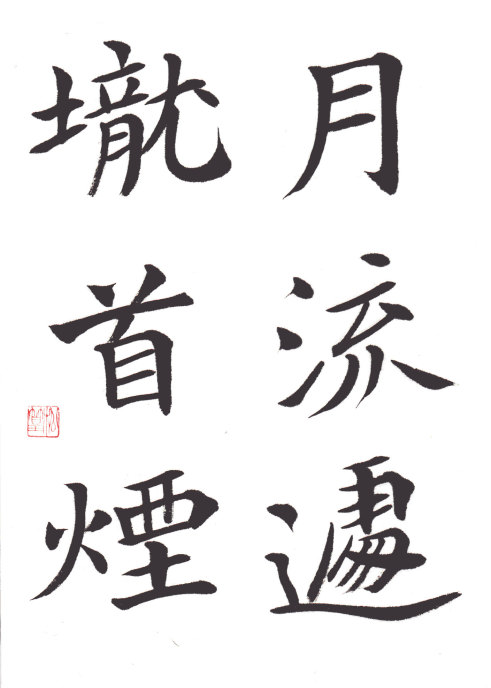 月流遽
壠首煙